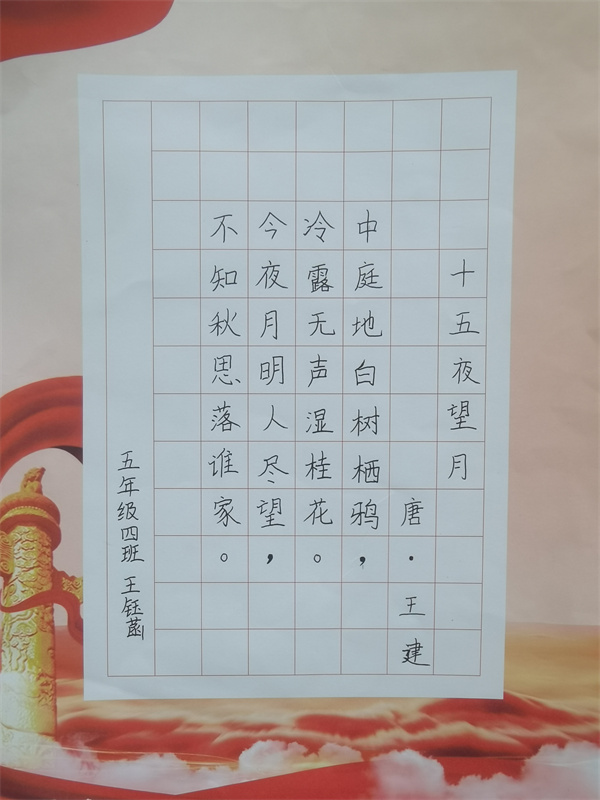 十五夜望月
唐·王建
中庭地白树栖鸦，
冷露无声湿桂花。
今夜月明人尽望，
不知秋思落谁家。
五年级四班 王钰菡